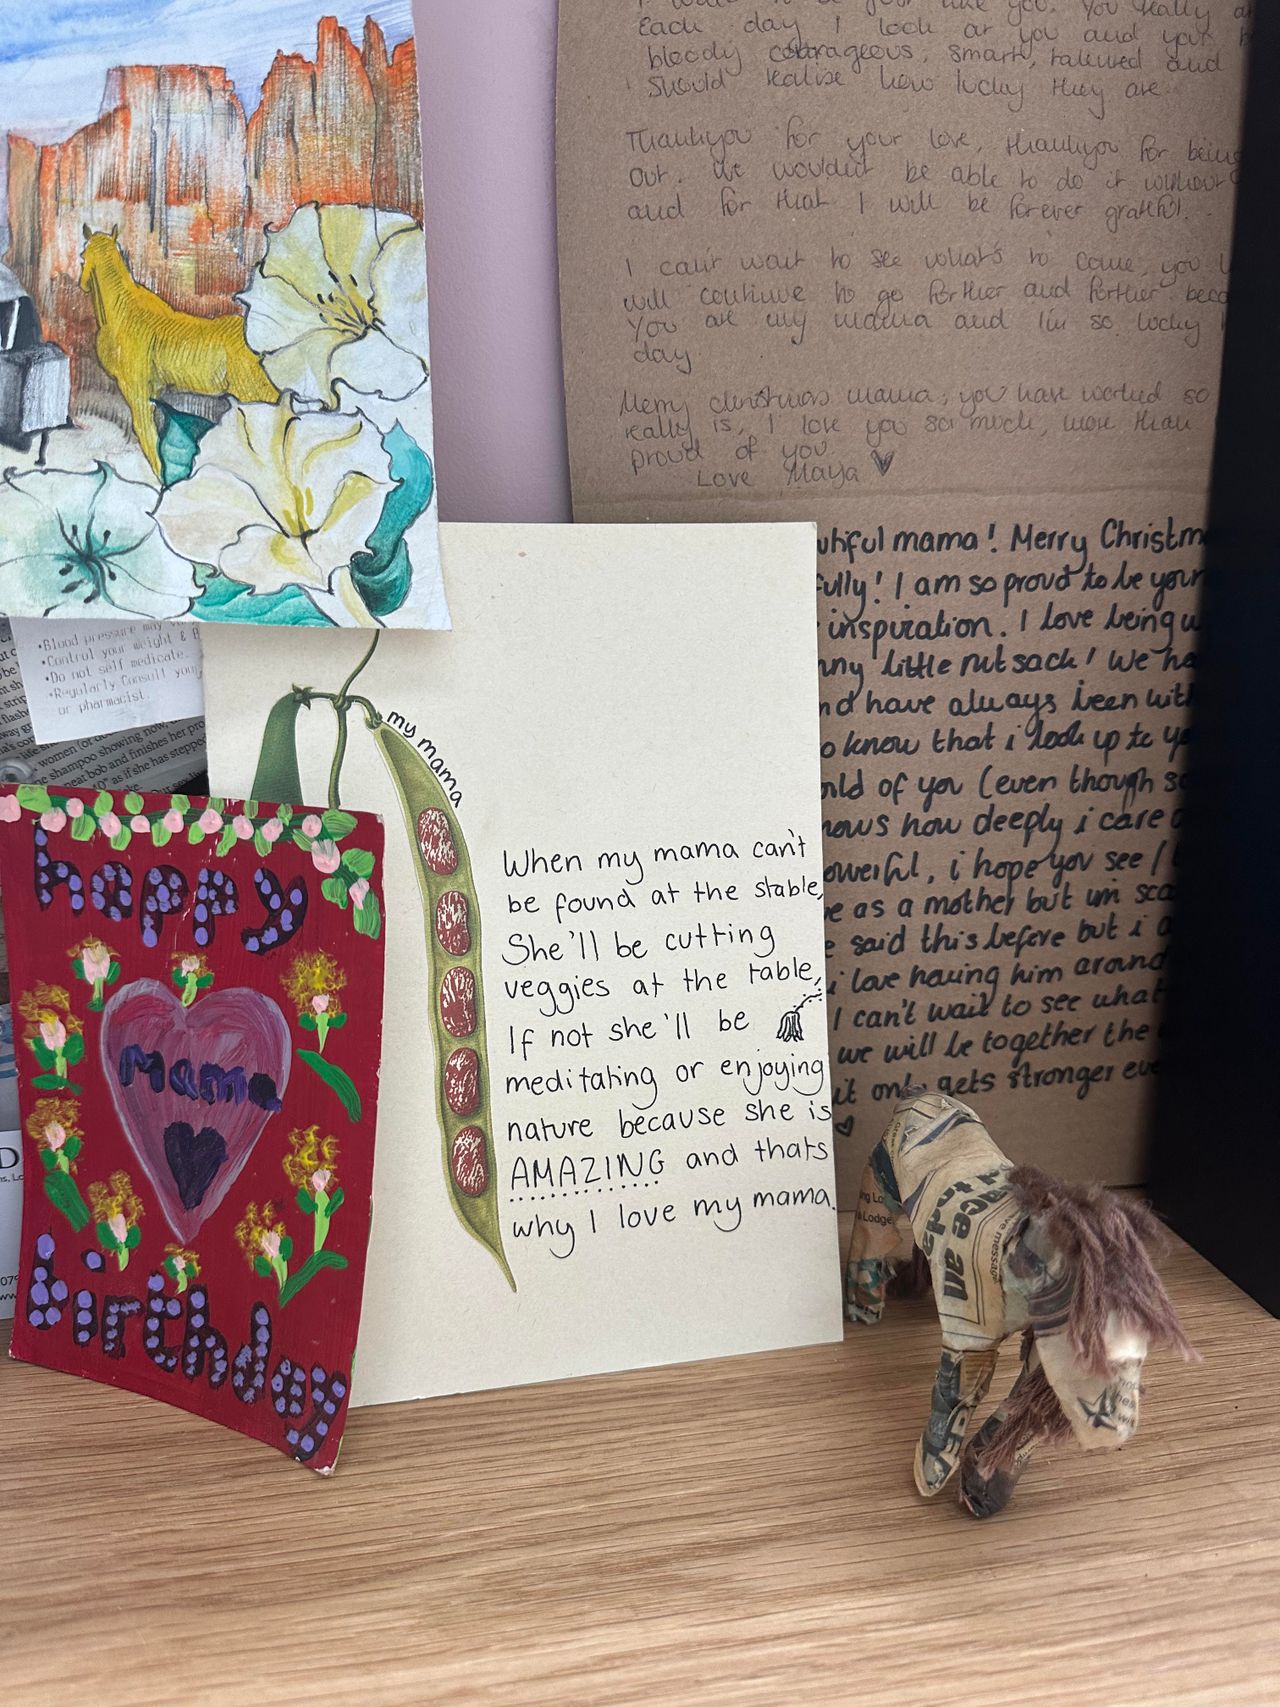 Each day I look at you and your
bloody courageous, smart, talented and
should realise how lucky they are.
Thankyou for your love, thankyou for being
out. We wouldn't be able to do it without
and for that I will be forever grateful.
I can't wait to see what's to come, you
will continue to go further and further
You are my mama and I'm so lucky
day
Merry christmas mama, you have worked so
really is, I love you so much, more than
proud of you
Love Maya
mama! Merry Christm
fully! I am so proud to be your
inspiration. I love being
little nutsack! We
have always been with
know that i look up to
of you (even though
how deeply i care
i hope you see
as a mother but im
said this before but i
i love having him around
I can't wait to see what
we will be together the
it only gets stronger
•Blood pressure may
•Control your weight &
•Do not self medicate.
•Regularly Consult your
or pharmacist.
women (or
shampoo showing now,
neat bob and finishes her
10" as if she has stepped
my mama
When my mama can't
be found at the stable,
She'll be cutting
veggies at the table,
If not she'll be
meditating or enjoying
nature because she is
AMAZING and thats
why I love my mama.
happy
Mama
birthday